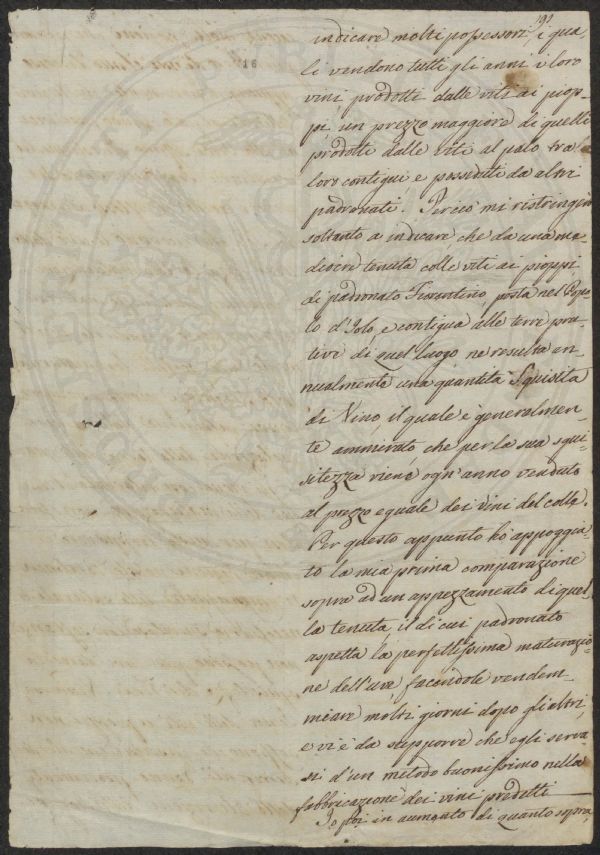 191
16
indicare molti possessori, i qua-
li vendono tutti gli anni i loro
vini prodotti dalle viti ai piop-
pi, un prezzo maggiore di quelli
prodotti dalle viti al palo tra
loro contigui, e posseduti da altri
padronati. Perciò mi ristringerò
soltanto a indicare che da una me-
diocre tenuta colle viti ai pioppi
di padronato Fiorentino, posta nel Popo-
lo d'Iolo, e contigua alle terre pra-
tive di quel luogo ne resulta an-
nualmente una quantità Squisita
di Vino il quale è generalmen-
te ammirato che per la sua squi-
sitezza viene ogn'anno venduto
al prezzo eguale dei vini del colle.
Per questo appunto hò appoggia-
to la mia prima comparazione
sopra ad un appezzamento di quel-
la tenuta, il di cui padronato
aspetta la perfettissima maturazio-
ne dell'uve, facendole vendem-
miare molti giorni dopo gli altri,
e vi è da supporre che egli serva-
si d'un metodo buonissimo nella
fabbricazione dei vini predetti
Io poi in aumento di quanto sopra,